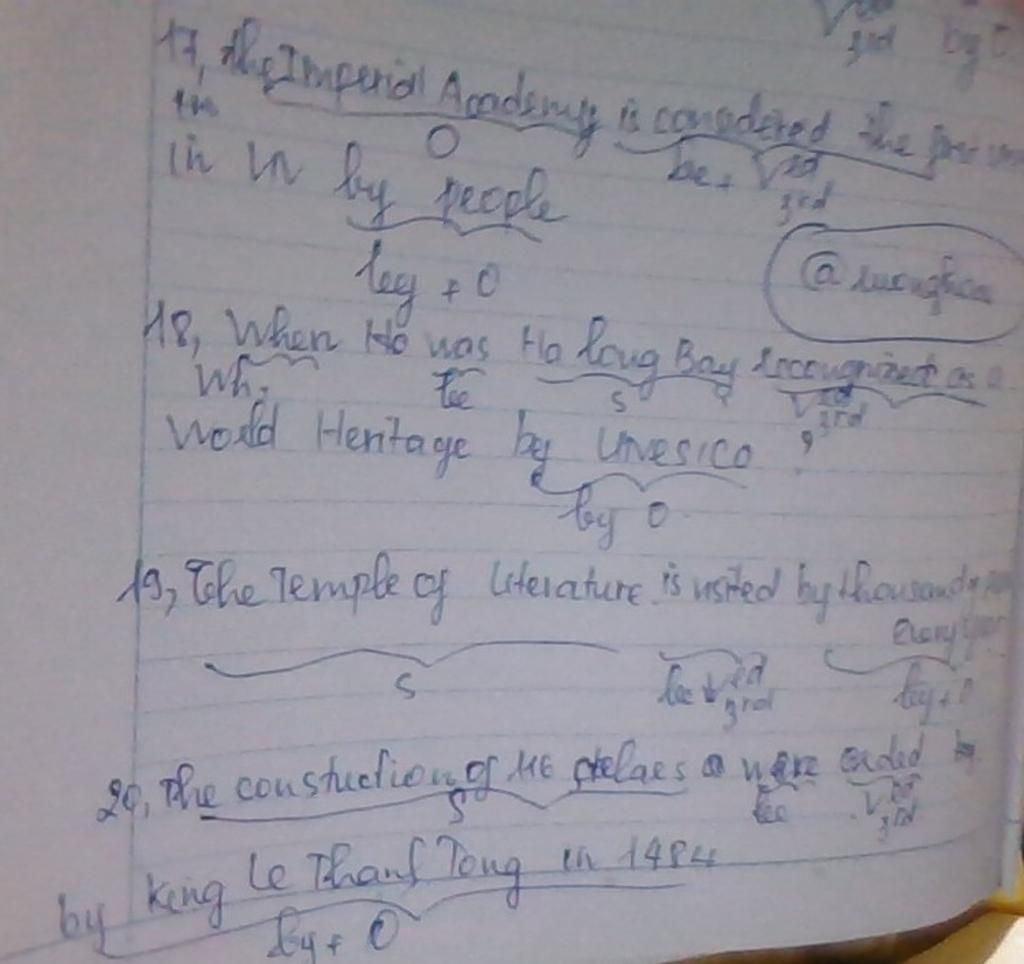 3rd by O
17, the Imperial Academy is considered the
in O be + V ed 3rd
in VN by people
by + O
@luonghoa
18, When Ho was Ha long Bay recognized as a
Wh. be S V ed 3rd
World Heritage by Unesico ?
by O
19, The Temple of Literature is visited by thousands
every year
S be + V ed 3rd by + O
20, The constuction of 116 stelaes were orded by
S be V ed 3rd
by King Le Thanf Tong in 1484
by + O